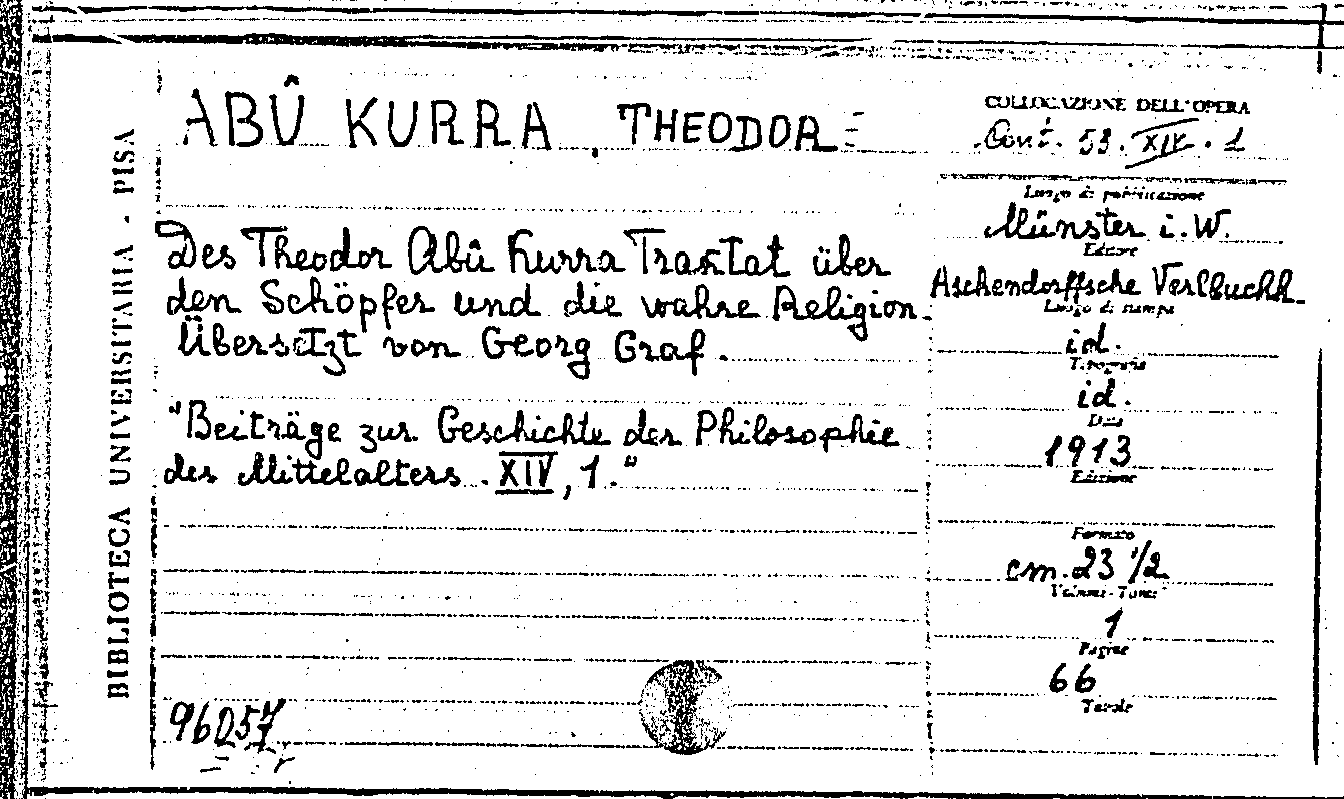 BIBLIOTECA UNIVERSITARIA - PISA
ABÛ KURRA, THEODOR
Des Theodor Abû Kurra Traktat über
den Schöpfer und die wahre Religion.
Übersetzt von Georg Graf.
"Beiträge zur Geschichte der Philosophie
des Mittelalters. XIV, 1."
96057
COLLOCAZIONE DELL'OPERA
Cont. 53. XIV. 1
Luogo di pubblicazione
Münster i. W.
Editore
Aschendorffsche Verlbuchh.
Luogo di stampa
id.
Tipografia
id.
Data
1913
Edizione
Formato
cm. 23 1/2
Volumi-Tomi
1
Pagine
66
Tavole